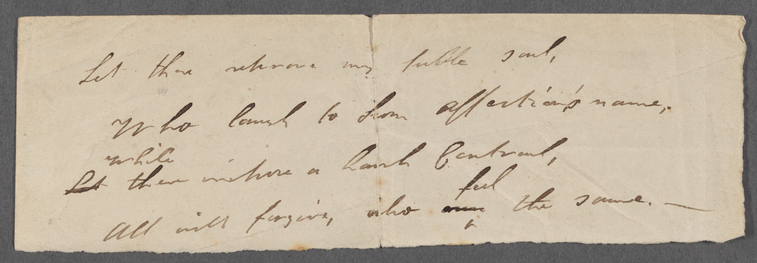 Let those reprove my feeble soul,
Who laugh to scorn affection's name,
while
Let these impose a harsh Controul,
All will forgive, who feel the same. —